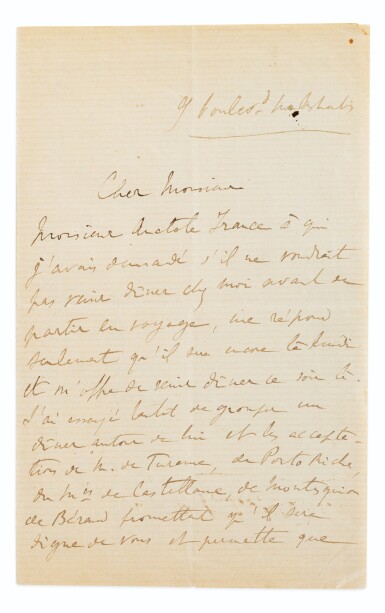 9 boulev.d Malesherbes
Cher Monsieur
Monsieur Anatole France à qui
j'avais demandé s'il ne voudrait
pas venir dîner chez moi avant de
partir en voyage, me répond
seulement qu'il sera encore là lundi
et m'offre de venir dîner ce soir là.
J'ai essayé de grouper un
dîner autour de lui et les accepta-
tions de M. de Turenne, de Porto Riche,
du Mis de Castellane, de Montesquiou
de Béraud promettent qu'il sera
digne de vous et permettent que